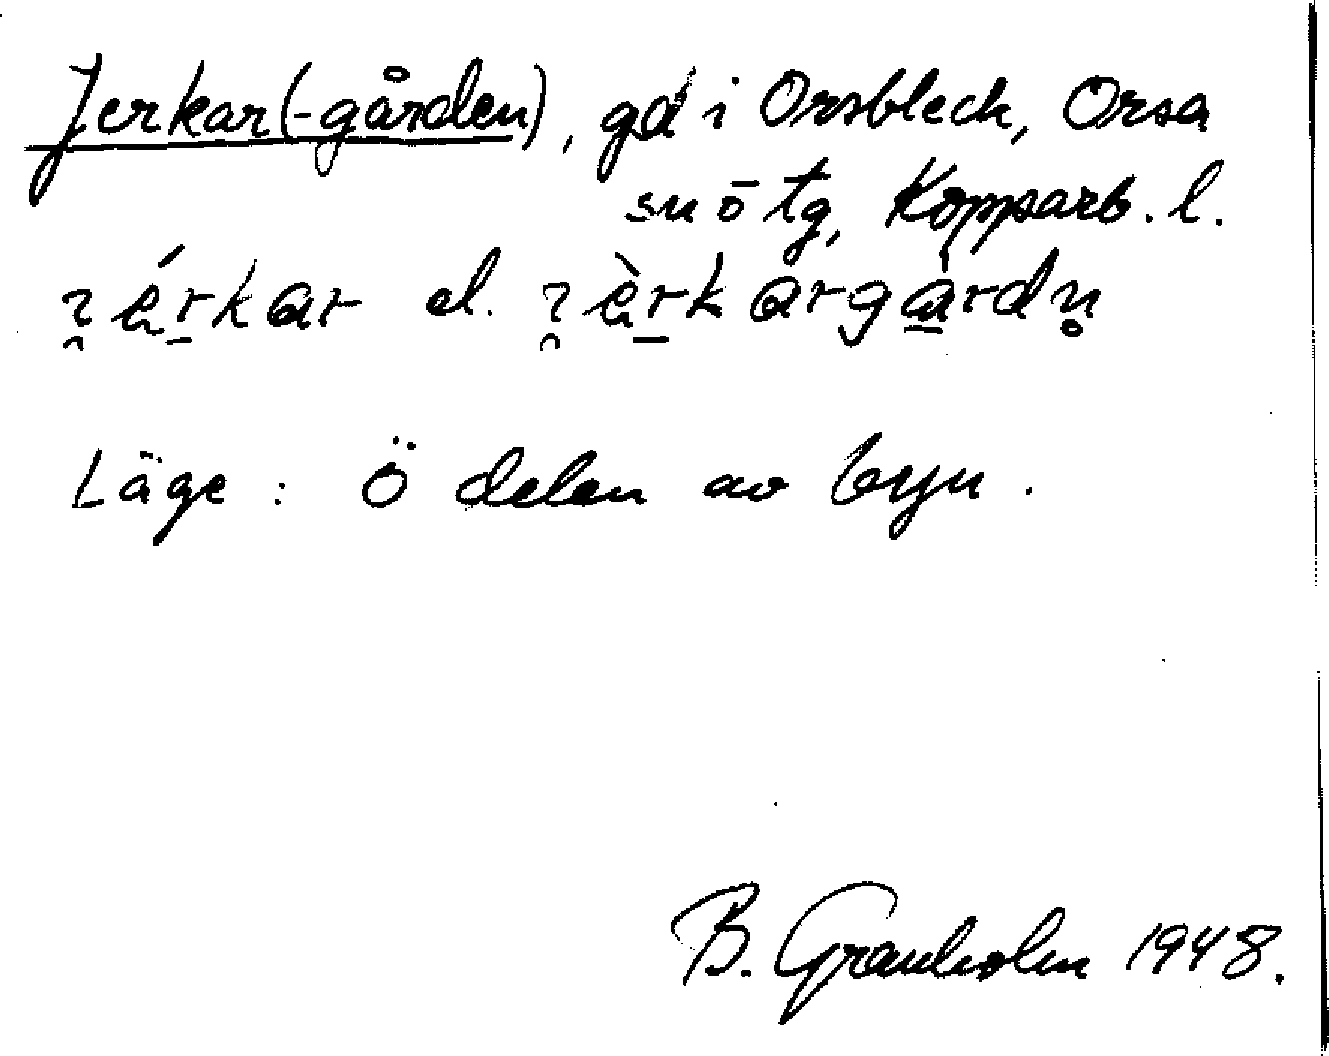 Jerkar(-gården), gd i Orsbleck, Orsa
sn o tg, Kopparb. l.
el.
Läge : Ö delen av byn .
B. Granholm 1948.